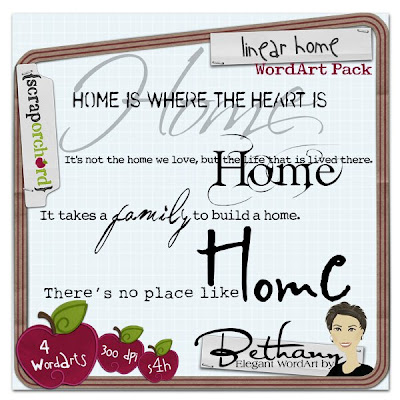 linear home
WordArt Pack
{scraporchard}
Home
HOME IS WHERE THE HEART IS
It's not the home we love, but the life that is lived there.
Home
It takes a family to build a home.
There's no place like Home
4 WordArts
300 dpi
s4h
Bethany
Elegant WordArt by